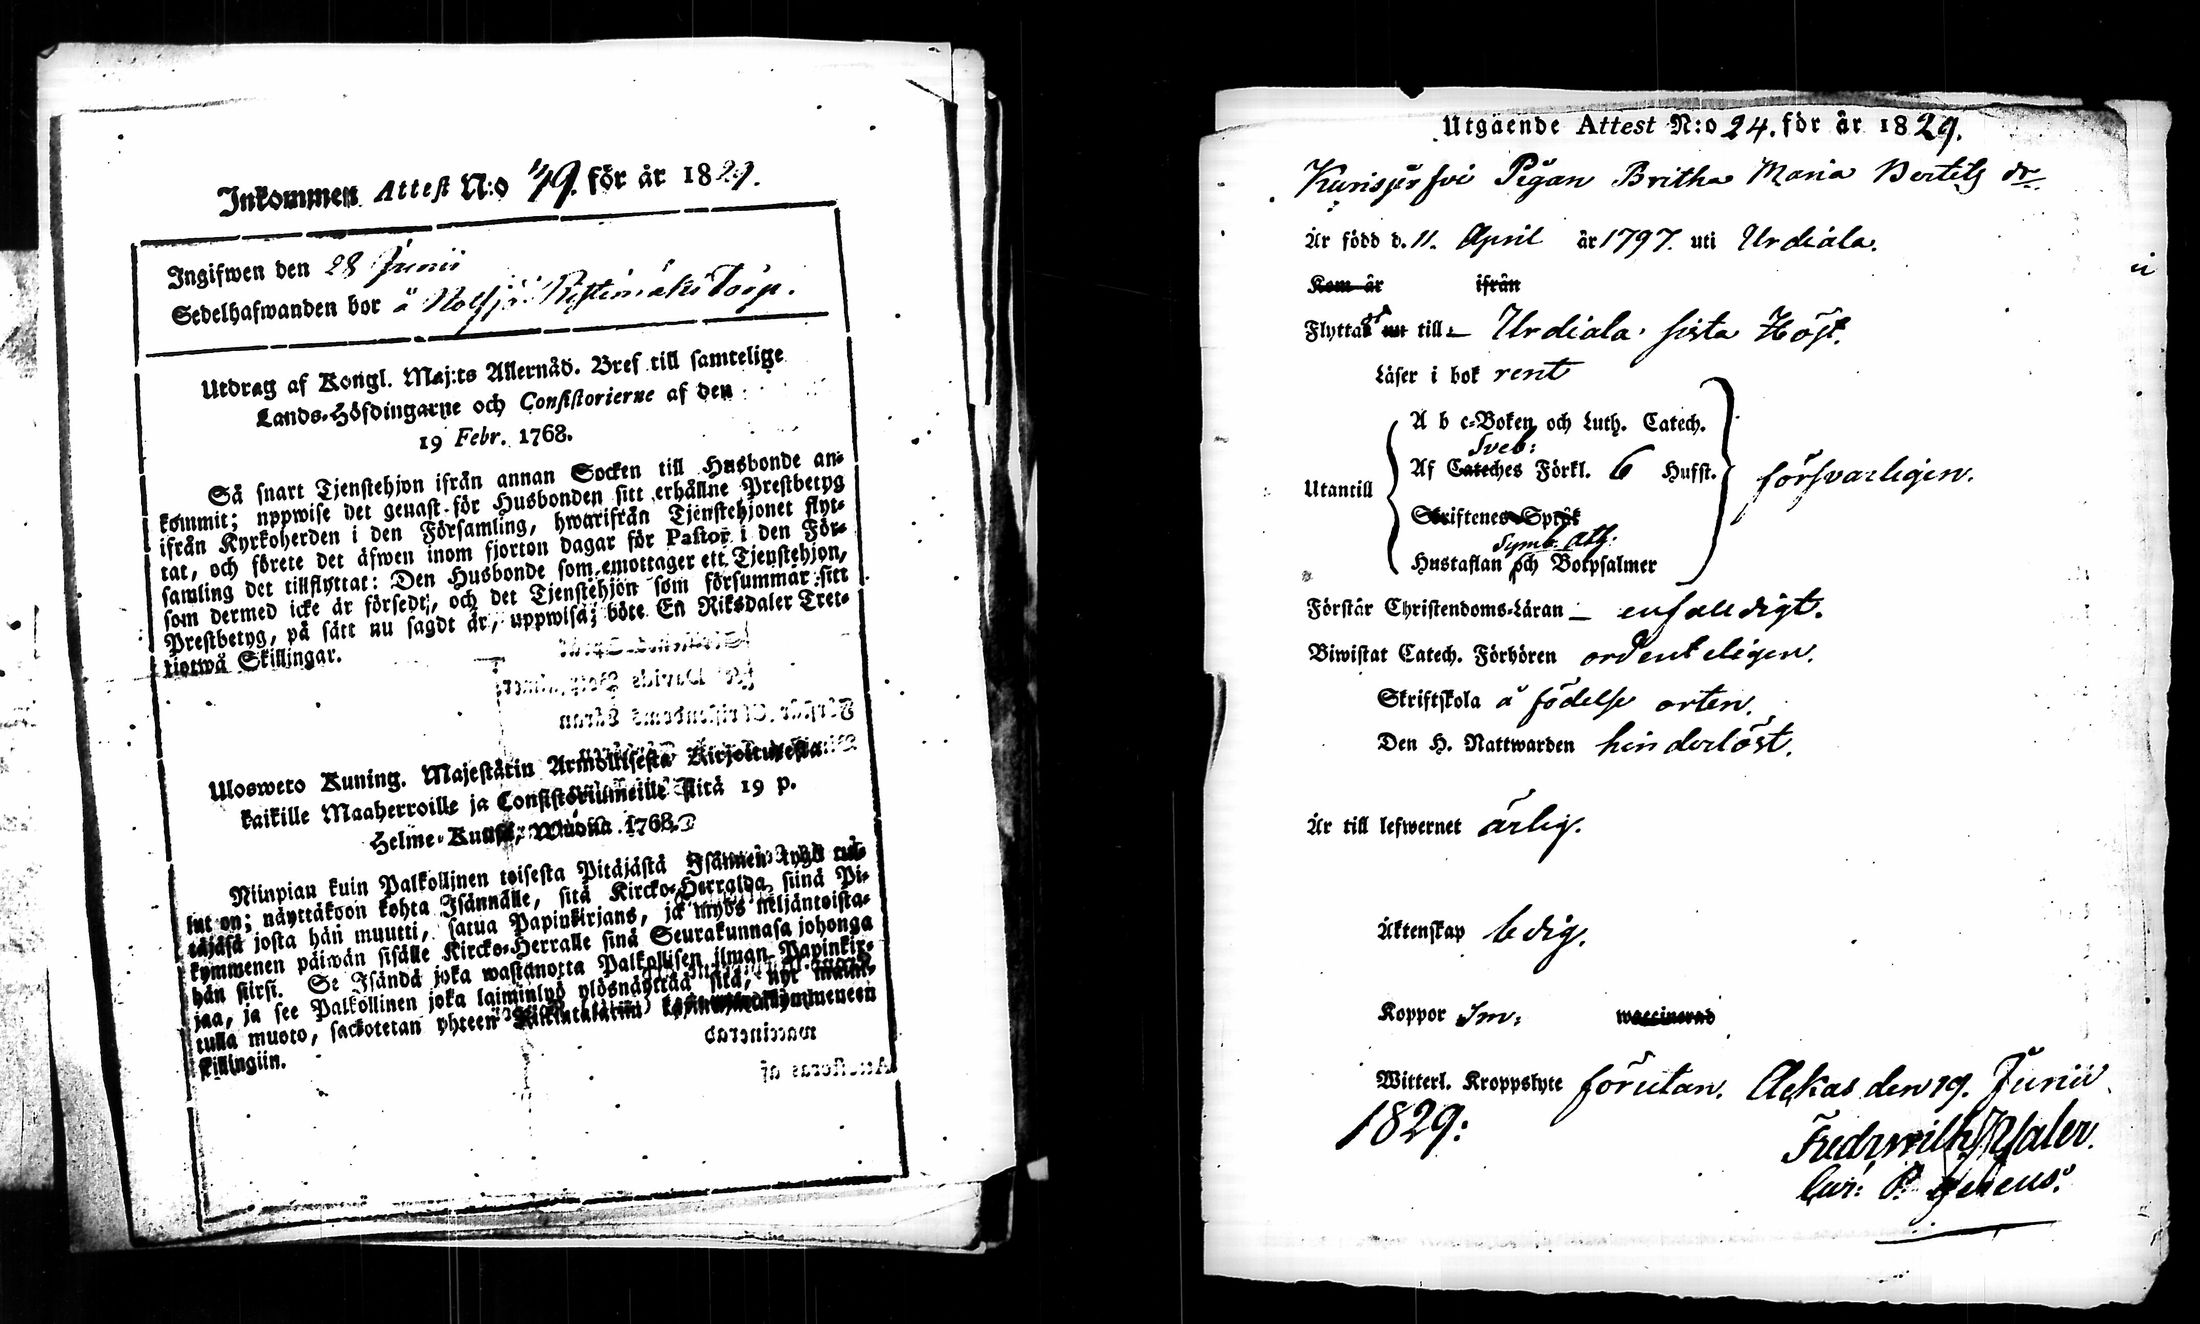 Inkommen Attest N:o 49. för år 1829.
Ingifwen den 28 Junii
Sedelhafwanden bor å Torp.
Utdrag af Kongl. Maj:ts Allernåd. Bref till samtelige
Lands-Höfdingarne och Consistorierne af den
19 Febr. 1768.
Så snart Tjenstehjon ifrån annan Socken till Husbonde an-
kommit; uppwise det genast för Husbonden sitt erhållne Prestbetyg
ifrån Kyrkoherden i den Församling, hwarifrån Tjenstehjonet flyt-
tat, och förete det äfwen inom fjorton dagar för Pastor i den För-
samling det tillflyttat: Den Husbonde som emottager ett Tjenstehjon,
som dermed icke är försedt, och det Tjenstehjon som försummar sitt
Prestbetyg, på sätt nu sagdt är, uppwisa; böte En Riksdaler Tret-
tiotwå Skillingar.
Uloswero Kuning. Majestätin Armollisesta Kirjoituxesta
kaikille Maaherroille ja Consistoriumeille siitä 19 p.
Helme-Kuusa, Wuonna 1768.
Niinpian kuin Palkollinen toisesta Pitäjästä Isännen tygö tul-
lut on; näyttäköön kohta Isännälle, sitä Kircko-Herralda siinä Pi-
täjäsä josta hän muutti, saatua Papinkirjans, ja myös neljäntoista-
kymmenen päiwän sisälle Kircko-Herralle siinä Seurakunnasa johonga
hän siirsi. Se Isändä joka wastanotta Palkollisen ilman Papinkir-
jaa, ja see Palkollinen joka laiminlyö ylösnäyttää sitä, nyt maini-
tulla muoto, sackotetan yhteen Riikintalariin kymmeneen
skillingiin.
Utgående Attest N:o 24. för år 1829.
Kurisjärfvi Pigan Britha Maria Bertils dr.
Är född d. 11. April år 1797. uti Urdiala.
Kom år ifrån
Flyttas nu till Urdiala sista Höst.
Läser i bok rent
A b c-Boken och Luth. Catech.
Sveb:
Af Cateches Förkl. 6 Hufst.
Utantill försvarligen.
Skriftenes Språk
Symb. Ath:
Hustaflan och Botpsalmer
Förstår Christendoms-Läran enfalldigt.
Biwistat Catech. Förhören ordenteligen.
Skriftskola å födelse orten.
Den H. Nattwarden hinderlöst.
Är till lefwernet ärlig.
Äktenskap ledig.
Koppor Im: waccinerad
Witterl. Kroppslyte förutan. Ackas den 19. Junii
1829: